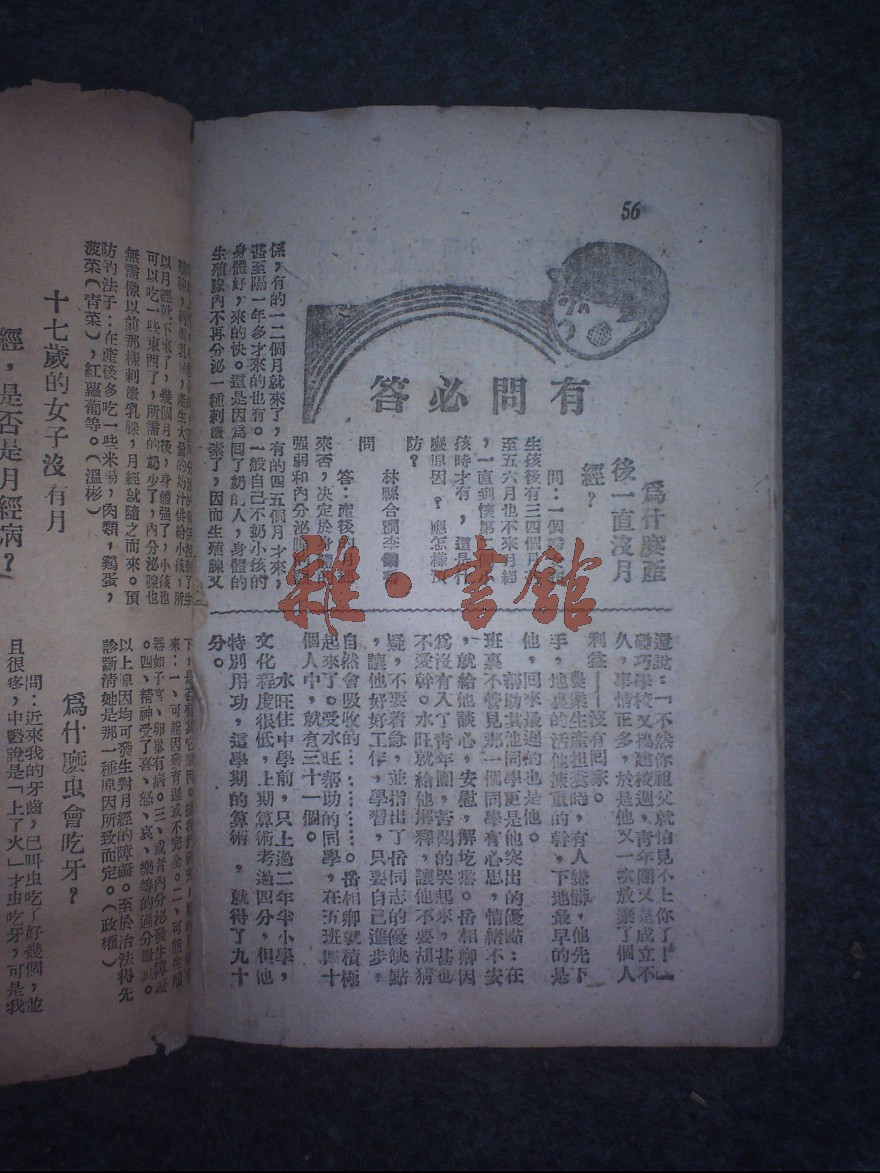 56
有問必答
爲什麽產
後一直沒月
經?
問:一個
生孩後有三四個月
至五六月也不來月經
,一直到懷第二個小
孩時才有,這是什
麽原因?應怎樣預
防?
林縣合澗李
問
答:產後月經
來否,决定於身體的
强弱和內分泌腺
係,有的一二個月就來了,有的四五個月才來,
甚至隔一年多才來的也有。一般自己不奶小孩的
身體好,來的快。這是因爲回了奶的人,身體的
生殖腺內不再分泌一種刺激素了,因而生殖腺又
還說:「不然你祖父就怕見不上你了!」
碰巧學校又搞建校週,青年團又是成立不
久,事情正多,於是他又一次放棄了個人
利益——沒有回家。
農業生產担糞時,有人嫌髒,他先下
手,地裏的活他揀重的幹,下地最早的是
他,回來最遲的也是他。
幫助其他同學更是他突出的優點:在
班裏不管見那一個同學有心思,情緒不安
,就給他談心,安慰,解圪𤺥。岳相卿因
爲沒有入了青年團,苦悶的哭起來,甚也
不愛幹。水旺就給他解釋,讓他不要胡猜
疑,不要着急,並指出了岳同志的優缺點
,讓他好好工作,學習,只要自己進步,
自然會吸收的………。岳相卿就積極
起來了。受水旺幫助的同學,在五班四十
個人中,就有三十一個。
水旺住中學前,只上過二年半小學,
文化程度很低,上期算術考過四分,但他
特別用功,這學期的算術,就得了九十
分。
產生大量的奶汁供給小孩,所
以月經就不來了,幾個月後,身體强了,小孩也
可以吃一些東西了,所需的奶少了,內分泌腺也
無需像以前那樣刺激乳腺,月經就隨之而來。預
防的法子:在產後多吃一些米湯,肉類,鷄蛋,
菠菜(青菜),紅蘿蔔等。(溫彬)
十七歲的女子沒有月
經,是否是月經病?
來:一、可能因發育遲或不完全。二、可能生殖
器如子宮、卵巢有病。三、或者內分泌發生障礙
。四、精神受了喜、怒、哀、樂等的過分激動。
以上原因均可發生對月經的障礙。至於治法得先
診斷清她是那一種原因所致而定。(政權)
爲什麽虫會吃牙?
問:近來我的牙齒,已叫虫吃了好幾個,並
且很疼,中醫說是「上了火」才虫吃牙,可是我
雜·書館